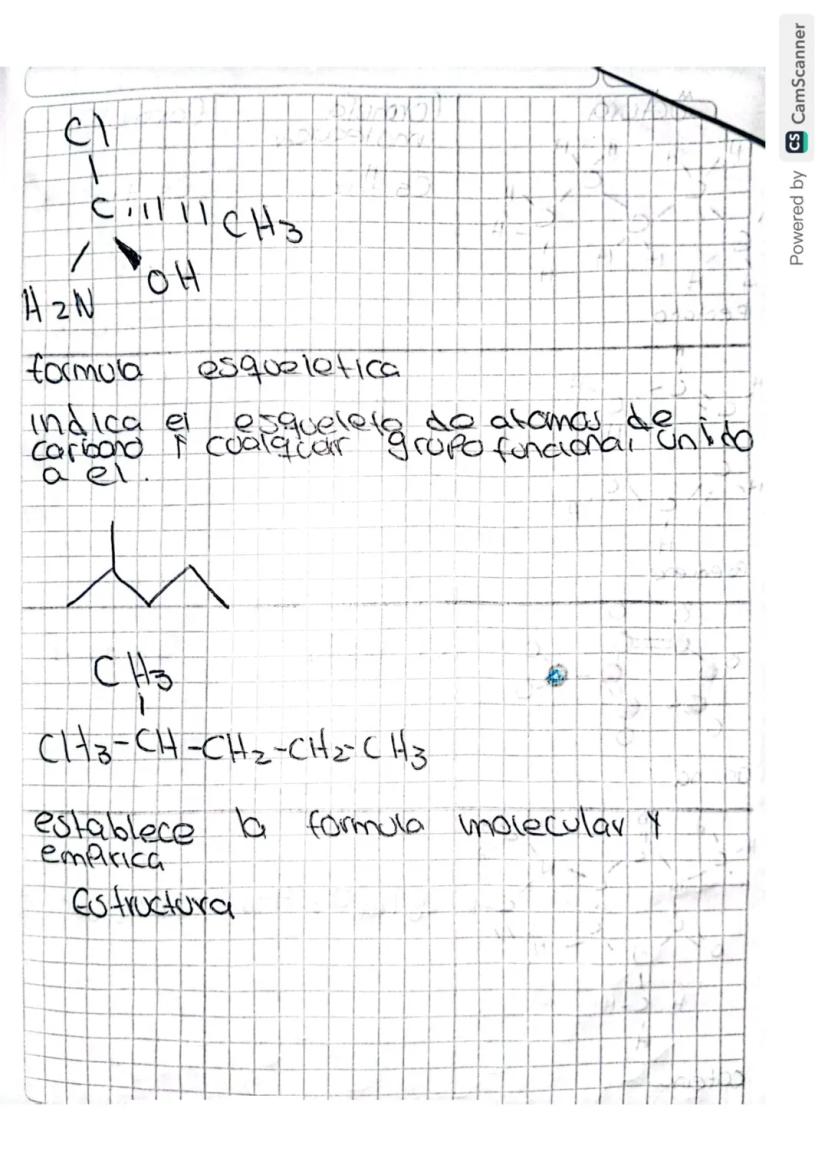 Cl
C CH3
OH
H2N
formula esqueletica
indica el esqueleto de atomos de
carbono y cualquier grupo funcional unido
a el.
CH3
CH3-CH-CH2-CH2-CH3
establece la formula molecular y
empirica
Estructura
Powered by CS CamScanner